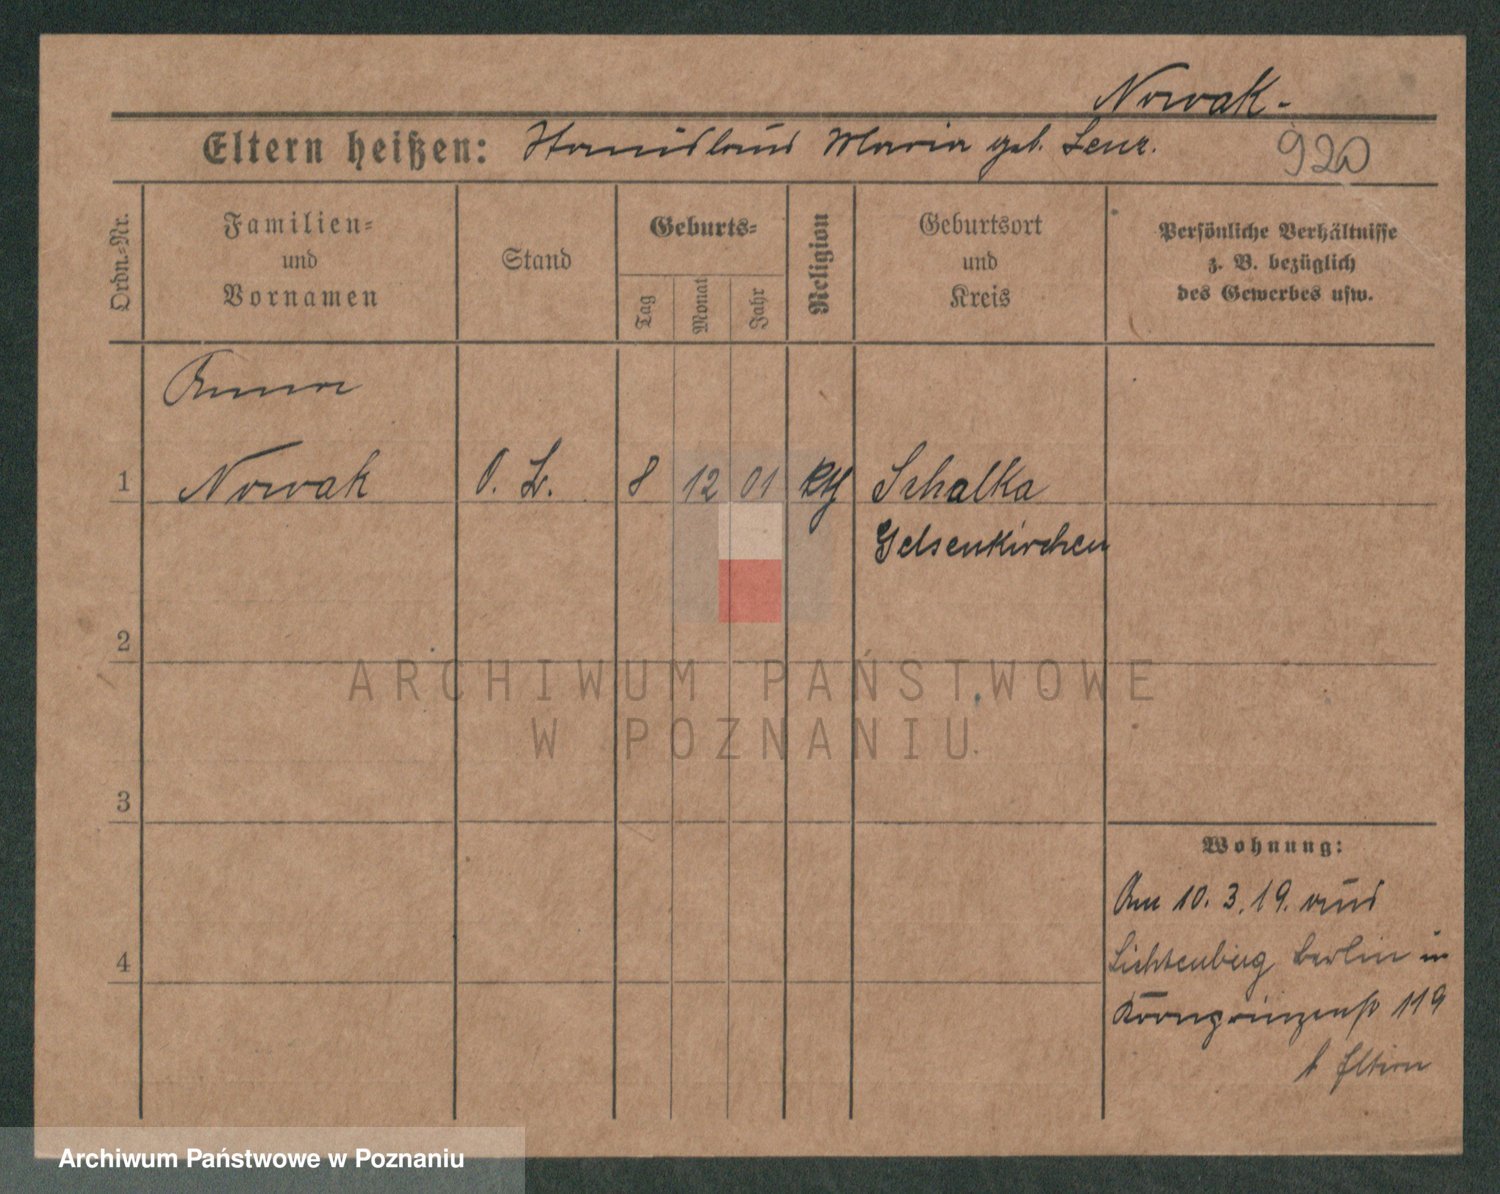 Nowak -
Eltern heißen: Stanislaus Maria geb. Lenz.
920
Ordn.-Nr.
Familien-
und
Vornamen
Stand
Geburts-
Tag
Monat
Jahr
Religion
Geburtsort
und
Kreis
Persönliche Verhältnisse
z. B. bezüglich
des Gewerbes usw.
Anna
1 Nowak 8 12 01 Kth Schalka
Gelsenkirchen
2
ARCHIWUM PAŃSTWOWE
W POZNANIU
3
Wohnung:
Am 10. 3. 19. aus
4
Lichtenberg Berlin in
Kronprinzenstr 119
Eltern
Archiwum Państwowe w Poznaniu